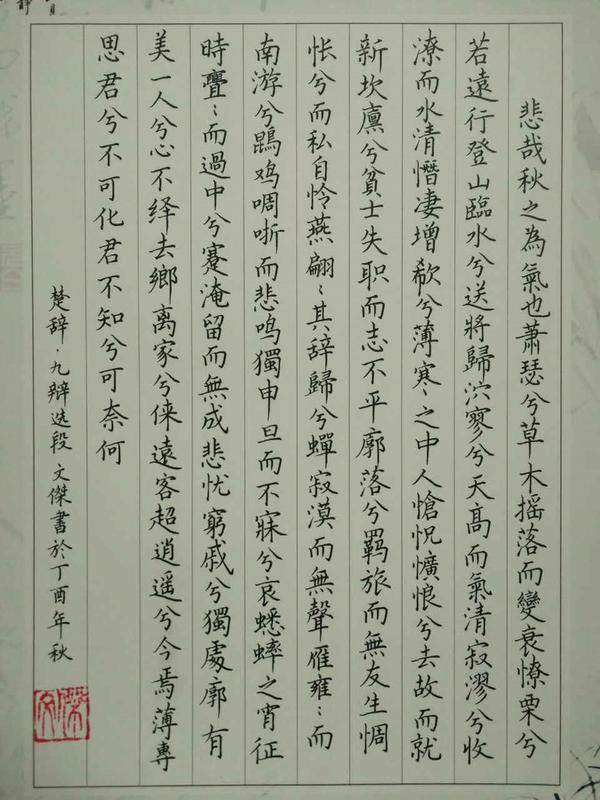 悲哉秋之為氣也蕭瑟兮草木摇落而變衰憭栗兮
若遠行登山臨水兮送將歸泬寥兮天高而氣清寂漻兮收
潦而水清憯凄增欷兮薄寒〻之中人愴怳懭悢兮去故而就
新坎廪兮貧士失职而志不平廓落兮羁旅而無友生惆
怅兮而私自怜燕翩〻其辞歸兮蟬寂漠而無聲雁雍〻而
南游兮鵾鸡啁哳而悲鸣獨申旦而不寐兮哀蟋蟀之宵征
時亹〻而過中兮蹇淹留而無成悲忧窮戚兮獨處廓有
美一人兮心不绎去鄉离家兮倈遠客超逍遥兮今焉薄專
思君兮不可化君不知兮可奈何
楚辞·九辩选段 文傑書於丁酉年秋